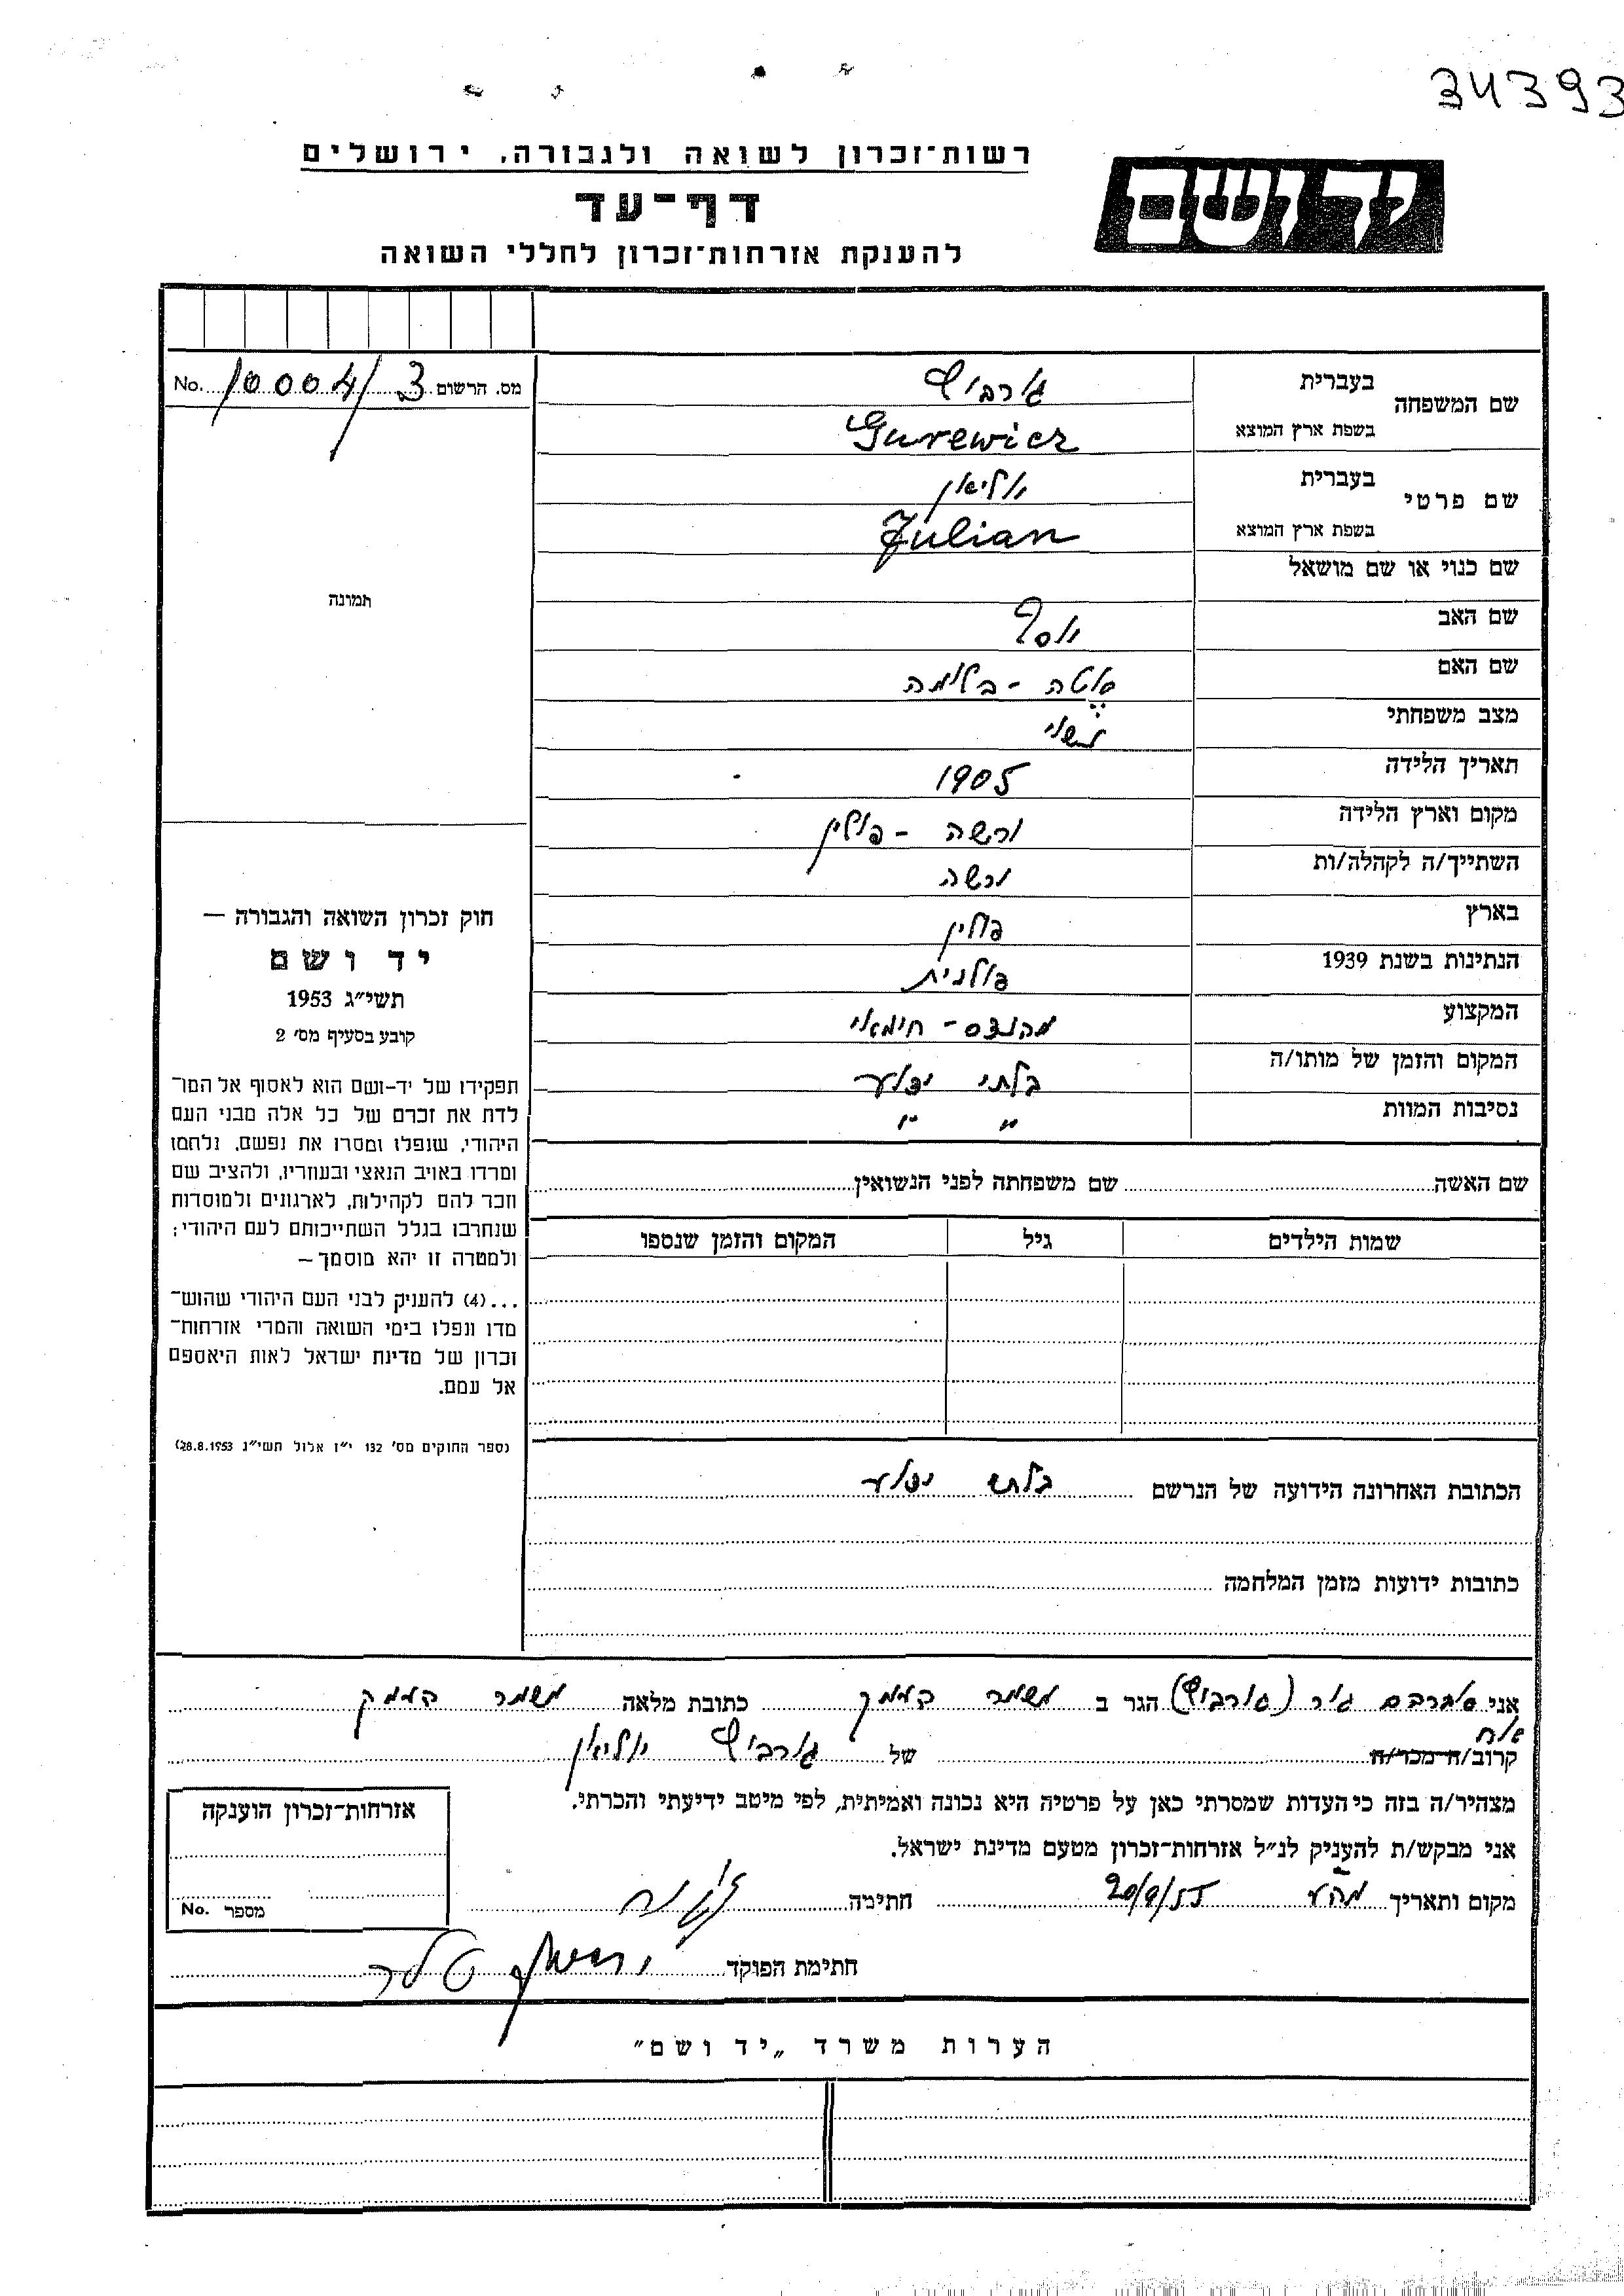 34393
רשות־זכרון לשואה ולגבורה, ירושלים
דף־עד
להענקת אזרחות־זכרון לחללי השואה
יד ושם
מס. הרשום 3 /10004 No.
שם המשפחה בעברית גורביץ
בשפת ארץ המוצא Gurewicz
שם פרטי בעברית יוליאן
בשפת ארץ המוצא Julian
שם כנוי או שם מושאל
שם האב יוסף
שם האם איטה - בלומה
מצב משפחתי נשוי
תאריך הלידה 1905
מקום וארץ הלידה ורשה - פולין
השתייך/ה לקהלה/ות ורשה
בארץ פולין
הנתינות בשנת 1939 פולנית
המקצוע מהנדס - חימאי
המקום והזמן של מותו/ה בלתי ידוע
נסיבות המוות " "
תמונה
חוק זכרון השואה והגבורה —
יד ושם
תשי״ג 1953
קובע בסעיף מס׳ 2
תפקידו של יד-ושם הוא לאסוף אל המו־
לדת את זכרם של כל אלה מבני העם
היהודי, שנפלו ומסרו את נפשם, נלחמו
ומרדו באויב הנאצי ובעוזריו, ולהציב שם
וזכר להם לקהילות, לארגונים ולמוסדות
שנחרבו בגלל השתייכותם לעם היהודי;
ולמטרה זו יהא מוסמך —
...(4) להעניק לבני העם היהודי שהוש־
מדו ונפלו בימי השואה והמרי אזרחות־
זכרון של מדינת ישראל לאות היאספם
אל עמם.
(ספר החוקים מס׳ 132 י״ז אלול תשי״ג 28.8.1953)
שם האשה שם משפחתה לפני הנשואין
שמות הילדים גיל המקום והזמן שנספו
הכתובת האחרונה הידועה של הנרשם בלתי ידוע
כתובות ידועות מזמן המלחמה
אני אברהם גור (גורביץ) הגר ב משמר העמק כתובת מלאה משמר העמק
אח
קרוב/ה מכר/ה של גורביץ יוליאן
מצהיר/ה בזה כי העדות שמסרתי כאן על פרטיה היא נכונה ואמיתית, לפי מיטב ידיעתי והכרתי.
אני מבקש/ת להעניק לנ״ל אזרחות־זכרון מטעם מדינת ישראל.
מקום ותאריך מה״ע 20/9/55 חתימה
חתימת הפוקד
אזרחות־זכרון הוענקה
מספר No.
הערות משרד „יד ושם״